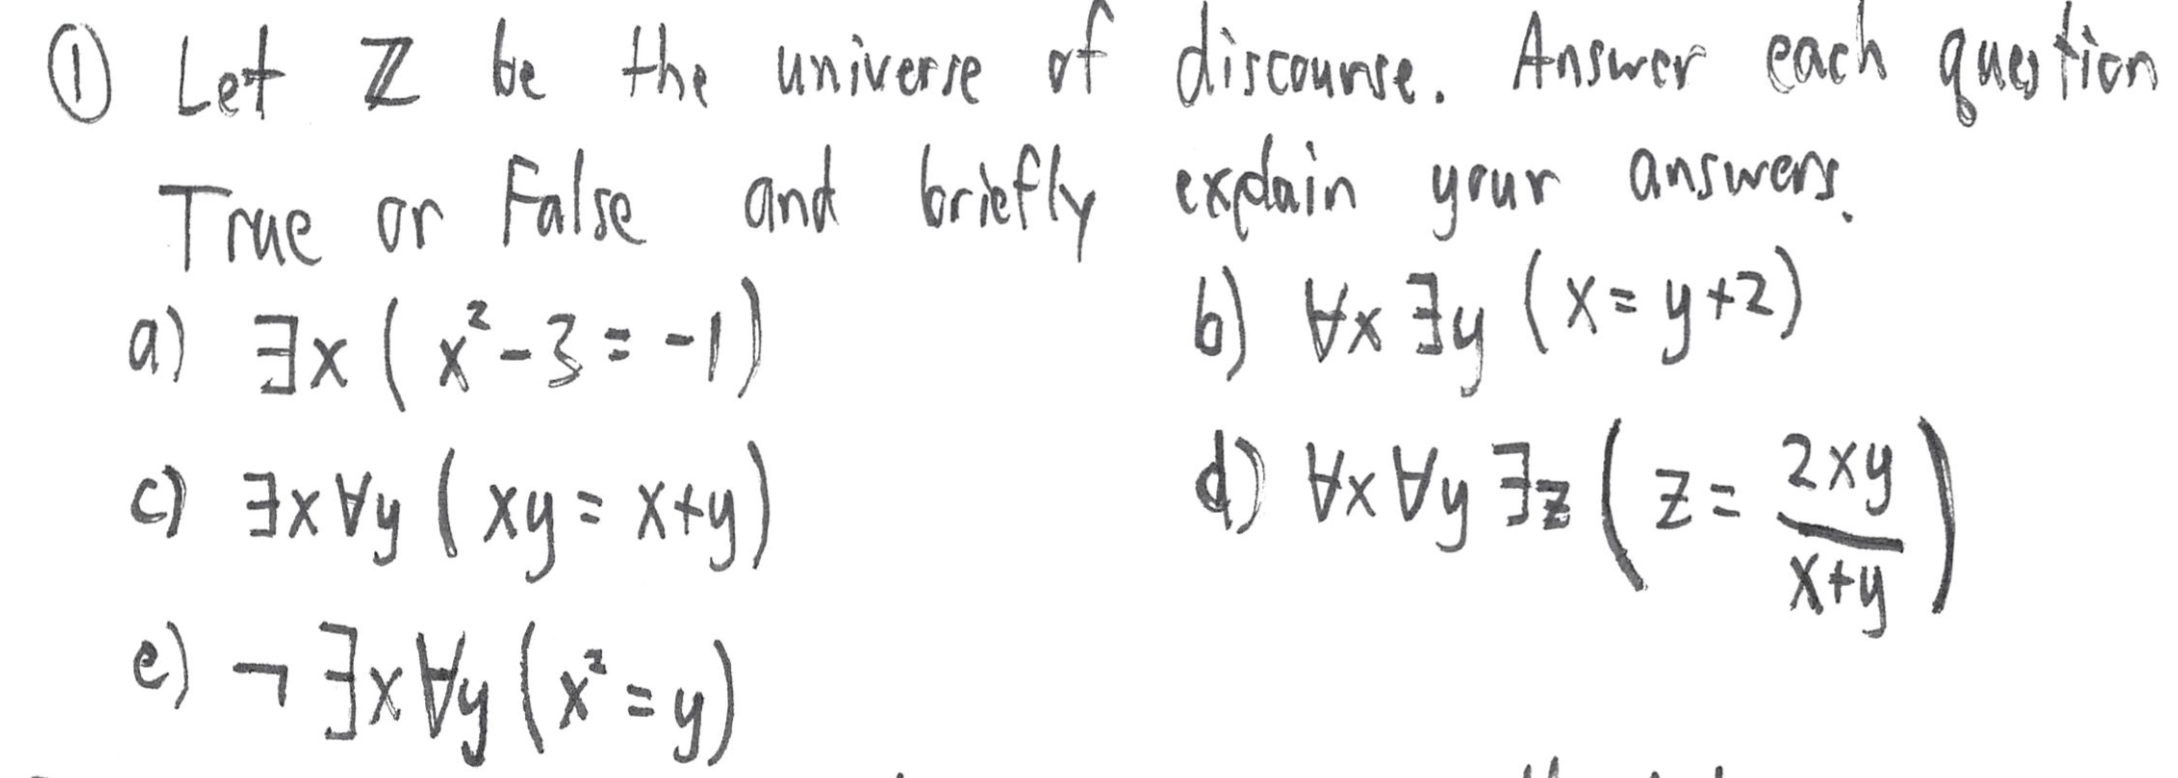 ① Let ℤ be the universe of discourse. Answer each question
True or False and briefly explain your answers.
a) ∃x (x²-3 = -1) b) ∀x ∃y (x = y+2)
c) ∃x ∀y (xy = x+y) d) ∀x ∀y ∃z (z = 2xy/(x+y))
e) ¬∃x ∀y (x² = y)